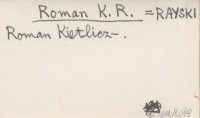 Roman K. R. = RAYSKI
Roman Kietlicz-.